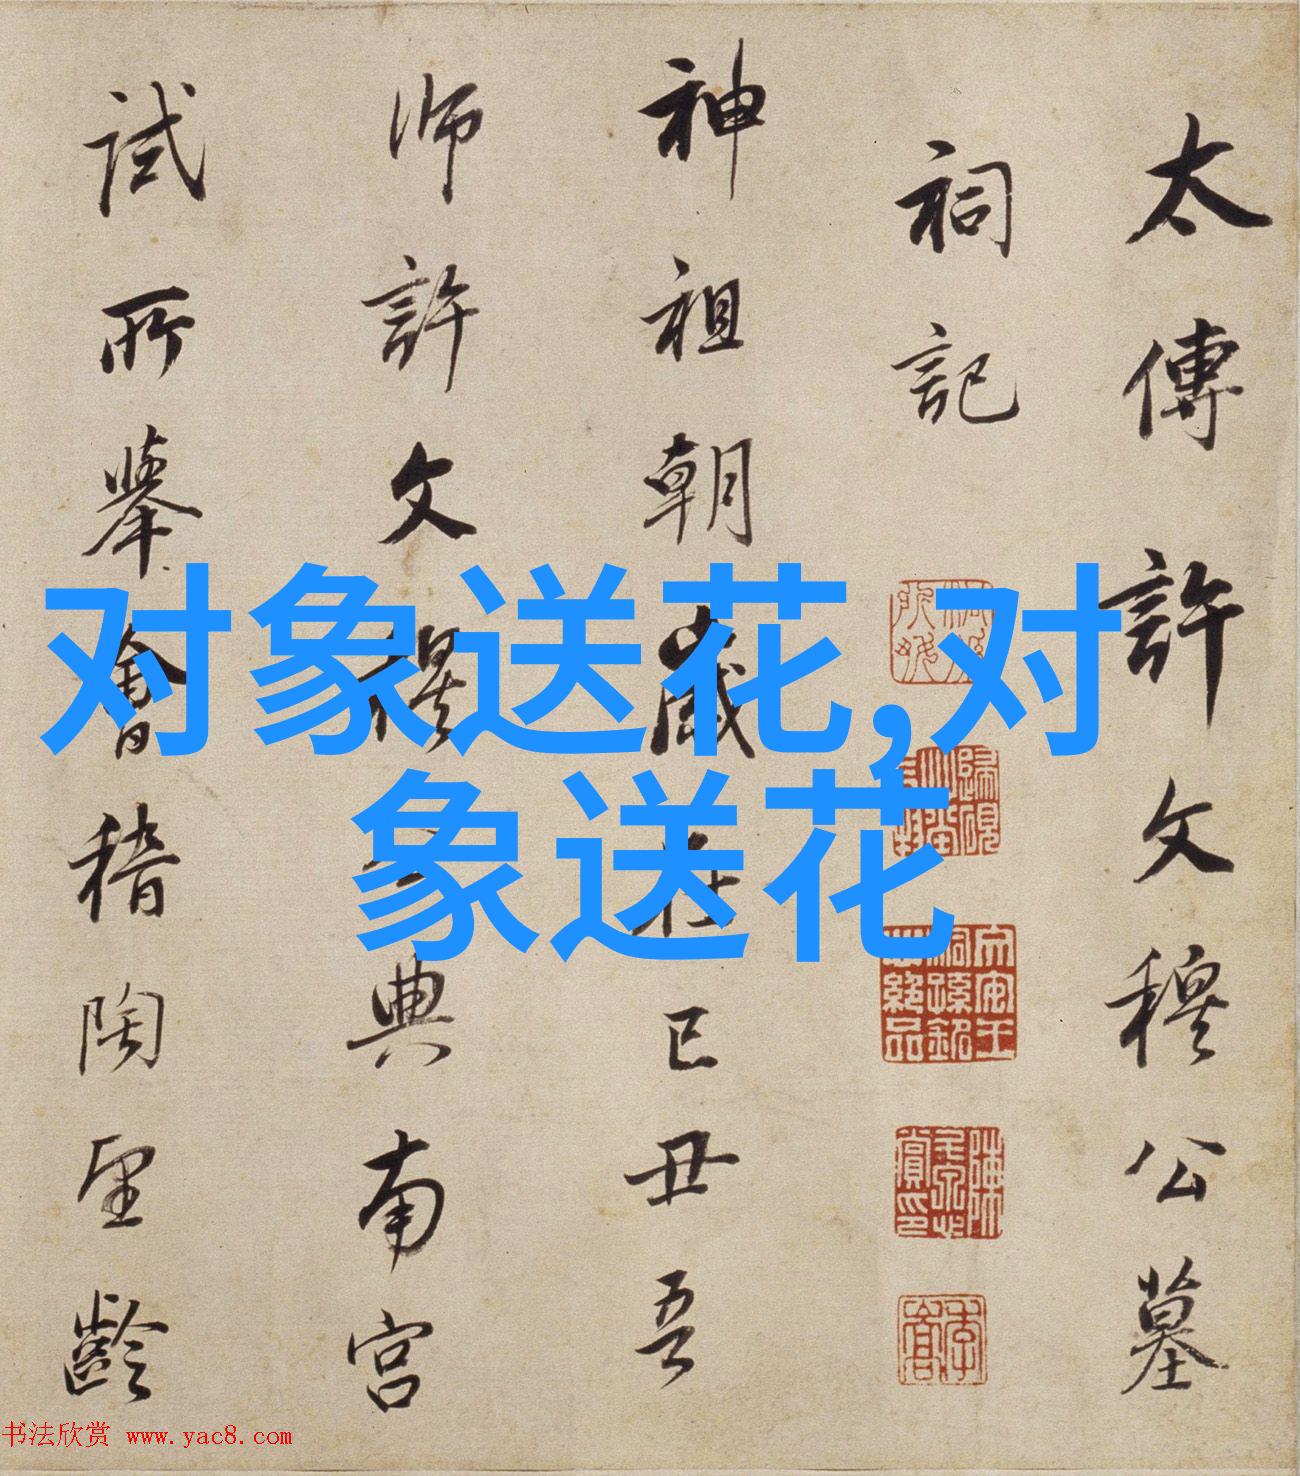 太傳許文穆公墓
祠記
神祖朝歲在己丑吾
師許文穆公典南宮
試所舉會稽陶望齡
对象送花,对
象送花
书法欣赏 www.yac8.com